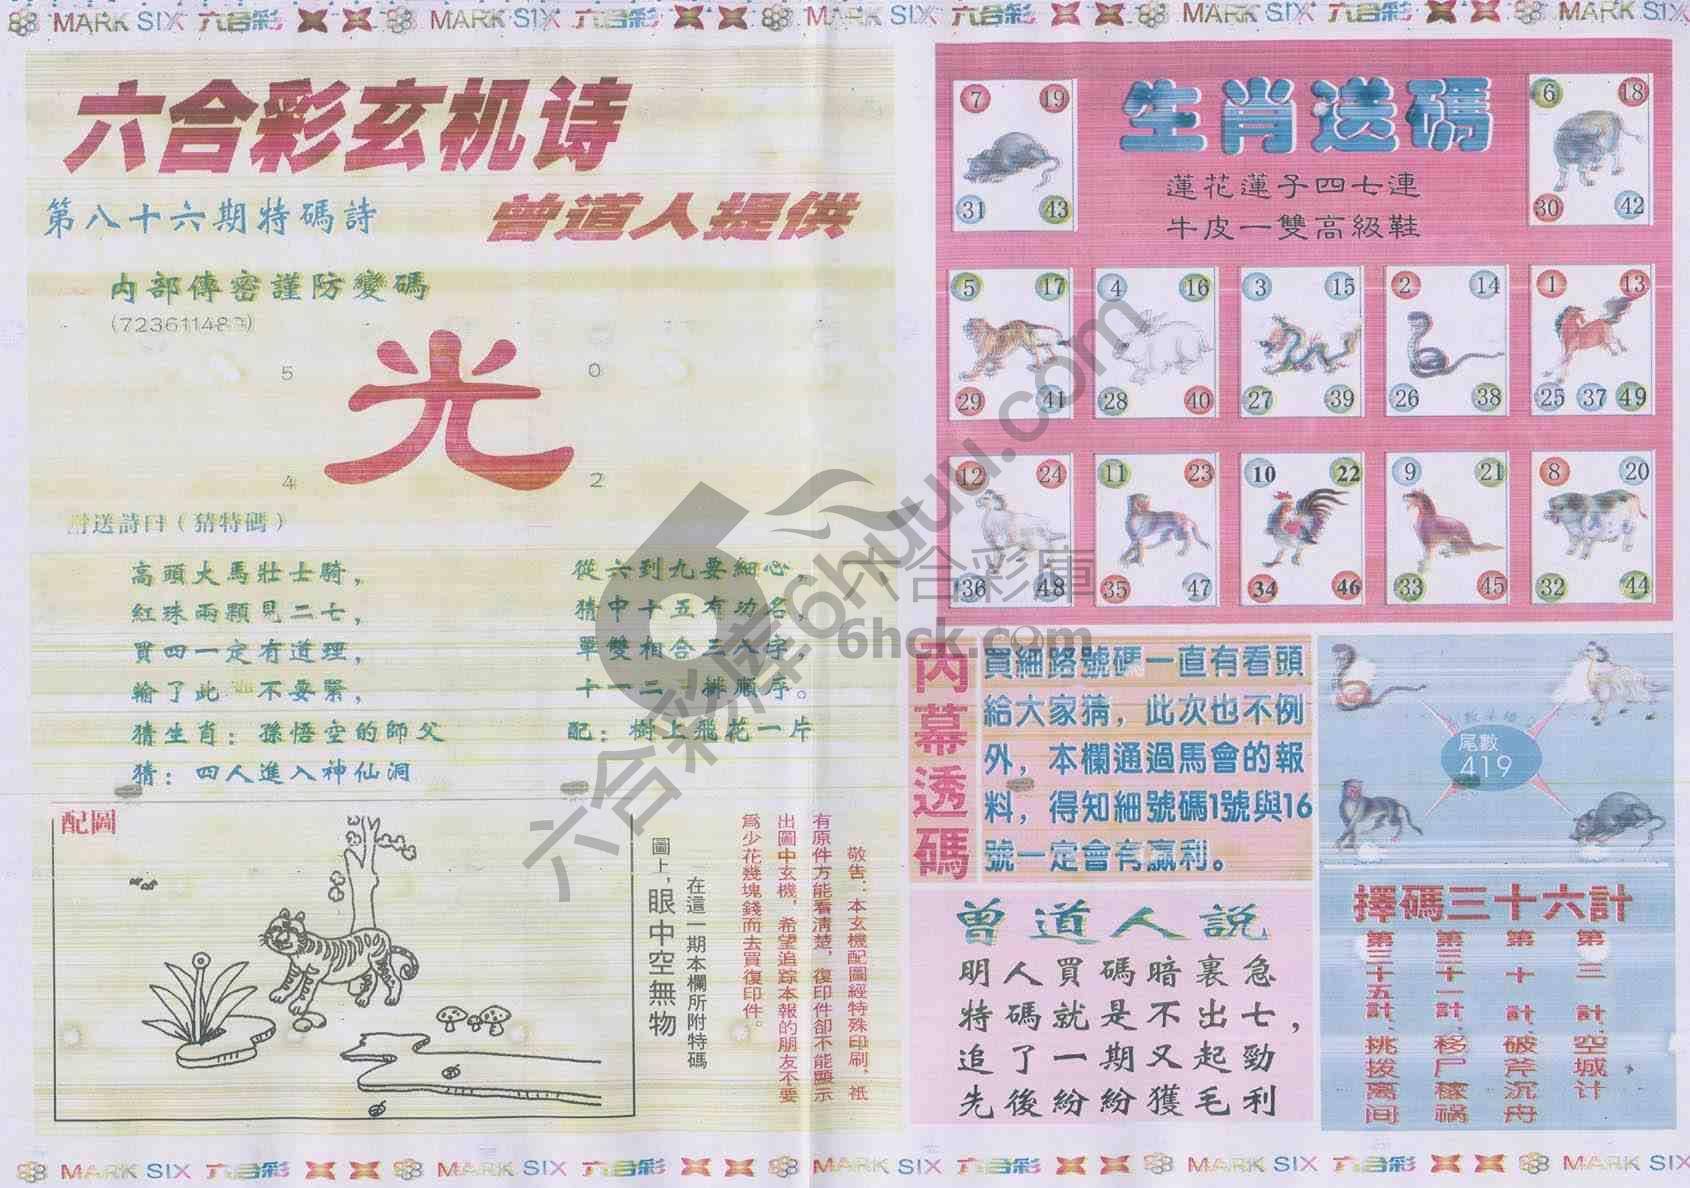 MARK SIX 六合彩 MARK SIX 六合彩 MARK SIX 六合彩 MARK SIX 六合彩 MARK SIX
六合彩玄机诗
第八十六期特碼詩
曾道人提供
内部傳密謹防變碼
5 0
光
4 2
送詩曰（猜特碼）
高頭大馬壯士騎，
紅珠兩顆見二七，
買四一定有道理，
輸了此 不要緊，
猜生肖：孫悟空的師父
猜：四人進入神仙洞
從六到九要細心，
猜中十五有功名，
單雙相合三八字，
十一二 排順序。
配：樹上飛花一片
配圖
敬告：本玄機配圖經特殊印刷，祇
有原件方能看清楚，復印件卻不能顯示
出圖中玄機，希望追踪本報的朋友不要
爲少花幾塊錢而去買復印件。
在這一期本欄所附特碼
圖上，眼中空無物
生肖送碼
蓮花蓮子四七連
牛皮一雙高級鞋
7 19
31 43
6 18
30 42
5 17
29 41
4 16
28 40
3 15
27 39
2 14
26 38
1 13
25 37 49
12 24
36 48
11 23
35 47
10 22
34 46
9 21
33 45
8 20
32 44
内幕透碼
買細路號碼一直有看頭
給大家猜，此次也不例
外，本欄通過馬會的報
料，得知細號碼1號與16
號一定會有贏利。
尾數
419
曾道人説
明人買碼暗裏急
特碼就是不出七，
追了一期又起勁
先後紛紛獲毛利
擇碼三十六計
第三計：空城计
第十計：破斧沉舟
第三十一計：移尸稼祸
第三十五計：挑拨离间
六合彩库 6htuu.com
六合彩庫
6hck.com
MARK SIX 六合彩 MARK SIX 六合彩 MARK SIX 六合彩 MARK SIX 六合彩 MARK SIX